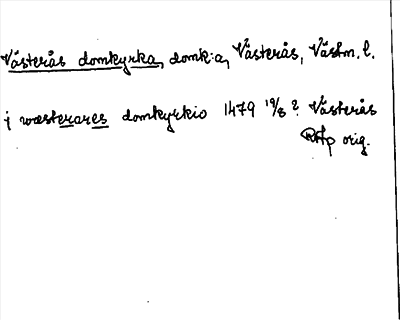 Västerås domkyrka, domk:a, Västerås, Västm. l.
j wæsterares domkyrkio 1479 19/8? Västerås
RAp orig.